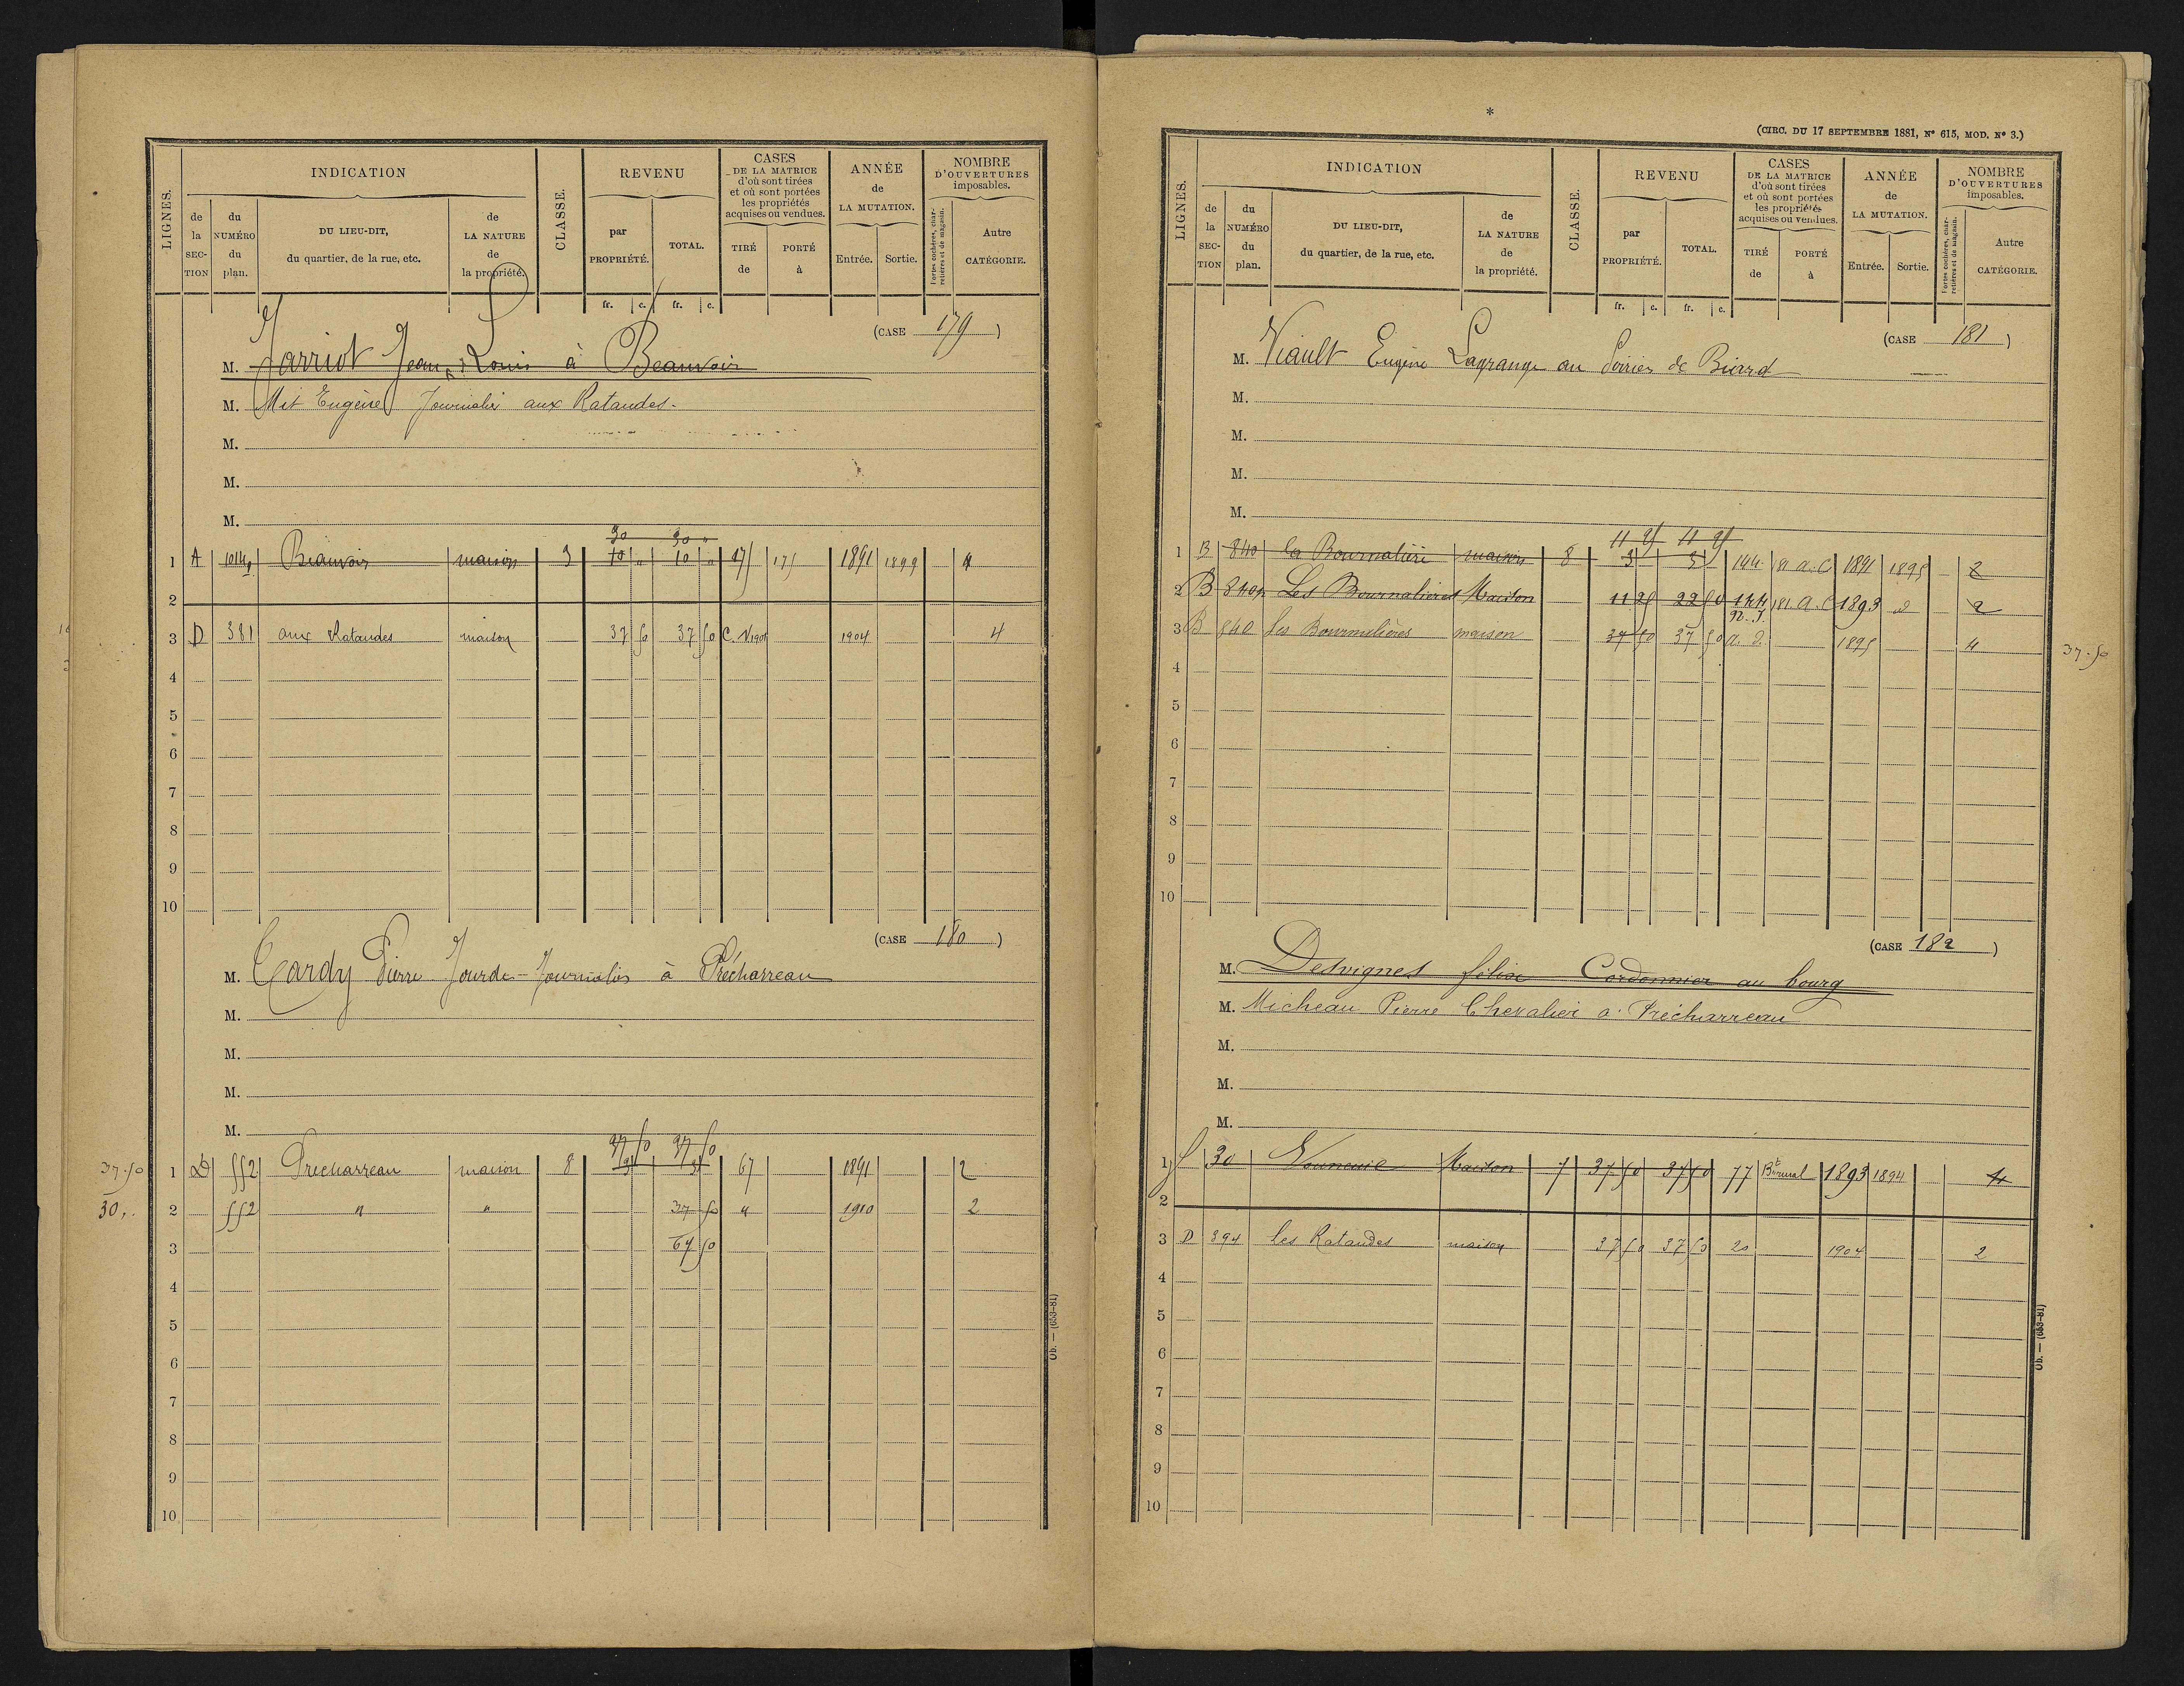 INDICATION
REVENU
CASES
DE LA MATRICE
d'où sont tirées
et où sont portées
les propriétés
acquises ou vendues.
ANNÉE
de
LA MUTATION.
NOMBRE
D'OUVERTURES
imposables.
LIGNES.
de la SECTION
du NUMÉRO du plan.
DU LIEU-DIT,
du quartier, de la rue, etc.
de LA NATURE de la propriété.
CLASSE.
par PROPRIÉTÉ.
TOTAL.
TIRÉ de
PORTÉ à
Entrée.
Sortie.
Portes cochères, charretières et de magasin.
Autre CATÉGORIE.
fr. c. fr. c.
(CASE 179)
M. Jarriot Jean Louis à Beauvoir
M. Mit Eugène Journalier aux Rataudes
M.
M.
M.
30 30 "
1 A Beauvoir maison 3 10 " 10 " 1891 1899 4
2
3 D 381 aux Rataudes maison 37 50 37 50 1904 4
4
5
6
7
8
9
10
(CASE 180)
M. Cardy Pierre Jourde-Journalier à Précharreau
M.
M.
M.
M.
37 50 37 50
37.50 1 D 552 Precharreau maison 8 3 3 67 1891 2
30,. 2 552 " " 37 50 " 1910 2
3 67 50
4
5
6
7
8
9
10
Ob. — (653-81)
*
(CIRC. DU 17 SEPTEMBRE 1881, N° 615, MOD. N° 3.)
INDICATION
REVENU
CASES
DE LA MATRICE
d'où sont tirées
et où sont portées
les propriétés
acquises ou vendues.
ANNÉE
de
LA MUTATION.
NOMBRE
D'OUVERTURES
imposables.
LIGNES.
de la SECTION
du NUMÉRO du plan.
DU LIEU-DIT,
du quartier, de la rue, etc.
de LA NATURE de la propriété.
CLASSE.
par PROPRIÉTÉ.
TOTAL.
TIRÉ de
PORTÉ à
Entrée.
Sortie.
Portes cochères, charretières et de magasin.
Autre CATÉGORIE.
fr. c. fr. c.
(CASE 181)
M. Viault Eugène Lagrange au Poirier de Biard
M.
M.
M.
M.
11 25 11 25
1 B 840 la Bournalière maison 8 3 3 144 181 a.C 1891 1895 2
2 B 840p Les Bournalières Maison 11 25 22 50 144 181 A.C 1893 d 2
3 B 840 les Bournalières maison 37 50 37 50 1895 4 37.50
4
5
6
7
8
9
10
(CASE 182)
M. Desvignes félix Cordonnier au bourg
M. Micheau Pierre Chevalier à Précharreau
M.
M.
M.
1 30 Vouneuil Maison 7 37 50 37 50 77 1893 1894 4
2
3 D 394 les Rataudes maison 37 50 37 50 20 1904 2
4
5
6
7
8
9
10
Ob. — (653-81)